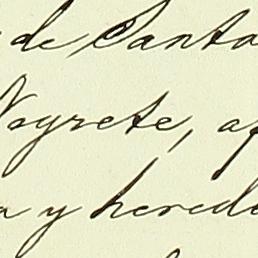 de Canta
Noyrete, af
a y herede